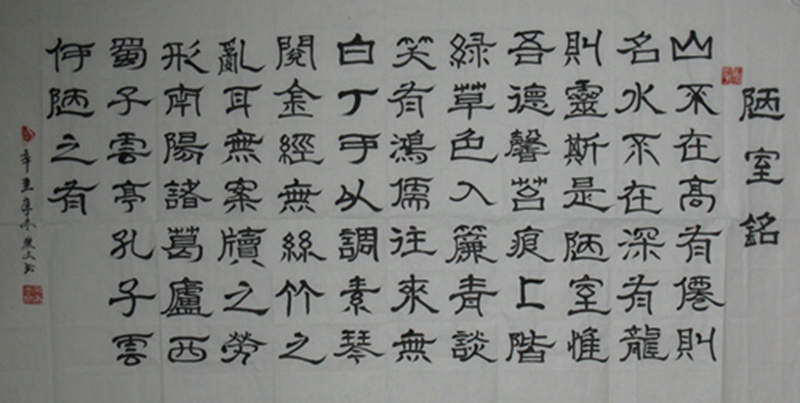 陋室銘
山不在高有僊則
名水不在深有龍
則靈斯是陋室惟
吾德馨苔痕上階
綠草色入簾青談
笑有鴻儒往來無
白丁可以調素琴
閱金經無絲竹之
亂耳無案牘之勞
形南陽諸葛廬西
蜀子雲亭孔子雲
何陋之有